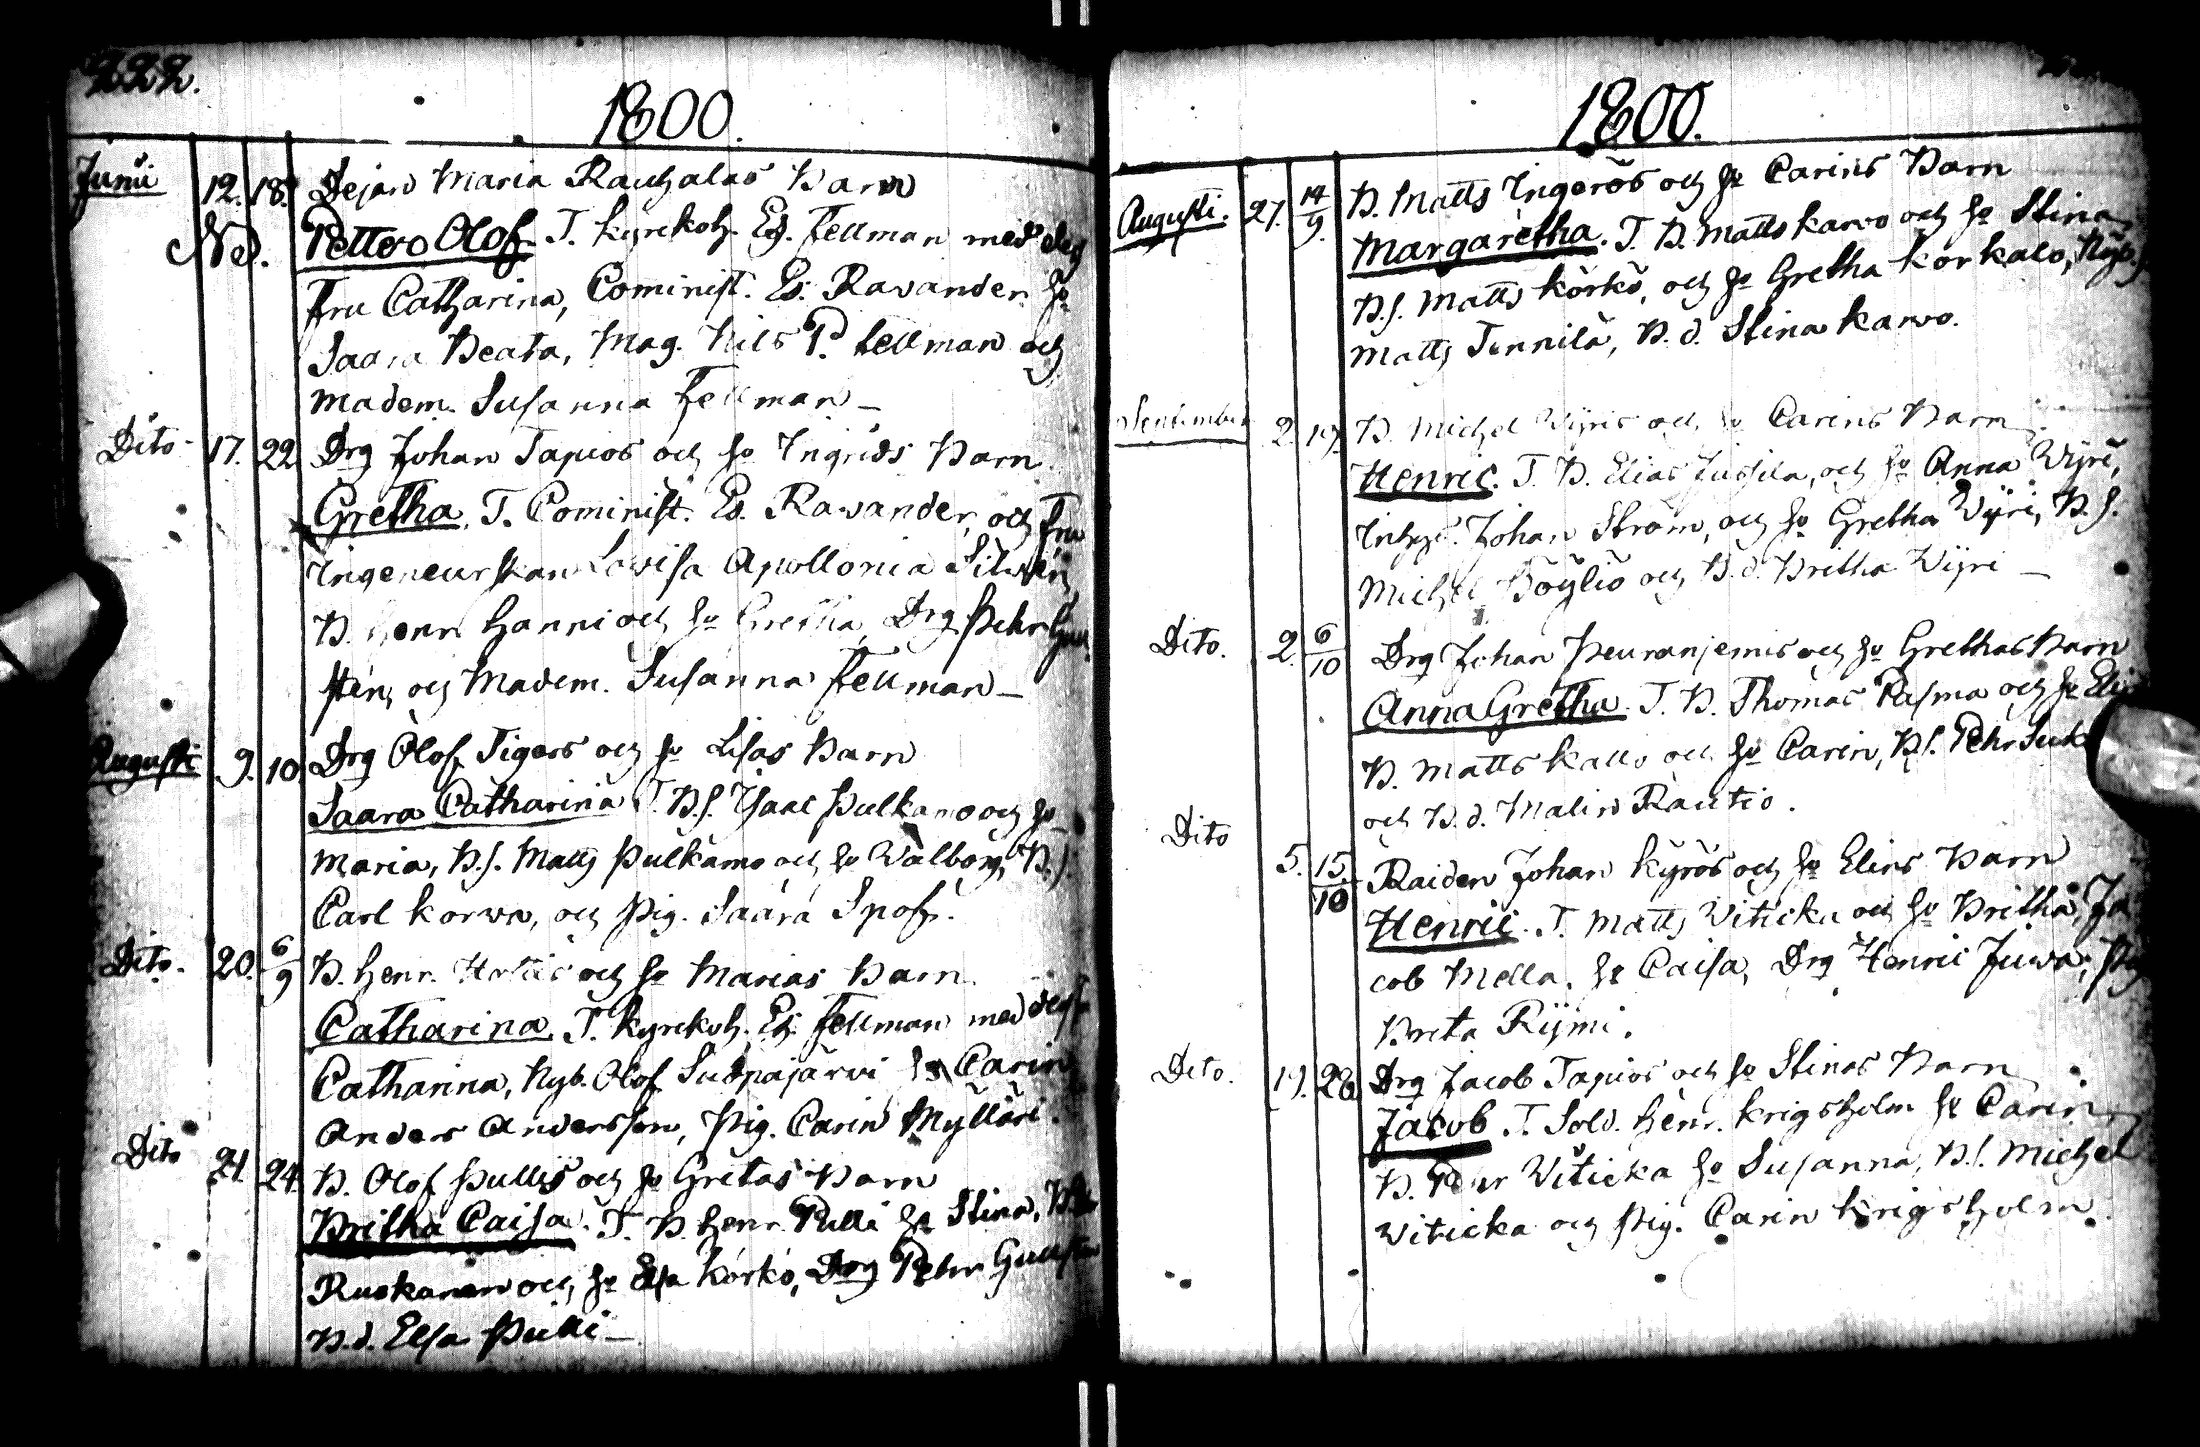 222.
1800.
Junii 12. 18. Dejan Maria Rautzalas Barn
NB. Petter Olof. T. Kyrckoh. Ez. Fellman med dess
Fru Catharina, Cominist. Es. Ravander, Ho
Saara Beata, Mag. Nils P. Fellman och
Madem. Susanna Fellman_
Dito 17. 22 Drg Johan Tapios och Ho Ingrids Barn.
Gretha. T. Cominist. Es. Ravander, och Fru
Ingeneurskan Lovisa Apollonia Silwén
B. Henr. Hanni och Ho Gretha, Drg Pehr Gull
stén, och Madem. Susanna Fellman_
Augusti 9. 10. Drg Olof Tigers och Ho Lisas Barn
Saara Catharina T. B.s. Isaac Pulkamo och Ho
Maria, B.s. Matts Pulkamo och Ho Walborg, B.s.
Carl Korva, och Pig. Saara Spof.
Dito. 20. 6/9 B. Henr. och Ho Marias Barn
Catharina. T. Kyrckoh. Ez. Fellman med dess
Catharina, Nyb. Olof Suopajärvi Ho Carin
Anders Andersson, Pig. Carin Mylläri.
Dito 21. 24. B. Olof Pullis och Ho Gretas Barn
Britha Caisa. T. B. Henr. Pulli Ho Stina,
Ruokanen och Ho Elsa Körkö, Drg Pehr Gullsten
B.d. Elsa Pulli_
1800.
Augusti. 27. 14/9. B. Matts Ingerös och Ho Carins Barn
Margaretha. T. B. Matts Karvo och Ho Stina,
B.s. Matts Körkö, och Ho Gretha Korkalo, Nyb.
Matts Tennilä, B.d. Stina Karvo.
September 2. 19. B. Michel Wyris och Ho Carins Barn
Henric. T. B. Elias Jussila, och Ho Anna Wyri,
Inhys. Johan Ström, och Ho Gretha Wyri, B.s.
Michel Pöyliö och B.d. Britha Wyri_
Dito. 2. 6/10 Drg Johan Peuranjemis och Ho Grethas Barn
Anna Gretha. T. B. Thomas Pasma och Ho
B. Matts Kallo och Ho Carin, B.s. Pehr
och B.d. Malin Rautio.
Dito 5. 15./10 Raiden Johan Kyrös och Ho Elins Barn
Henric. T. Matts Viticka och Ho Britha, Ja
cob Mella, Ho Caisa, Drg Henric Juwa, Pig
Breta Rymi.
Dito. 19. 28. Drg Jacob Tapios och Ho Stinas Barn
Jacob. T. Sold. Henr. Krigsholm Ho Carin,
B. Viticka Ho Susanna, B.s. Michel
Viticka och Pig. Carin Krigsholm.